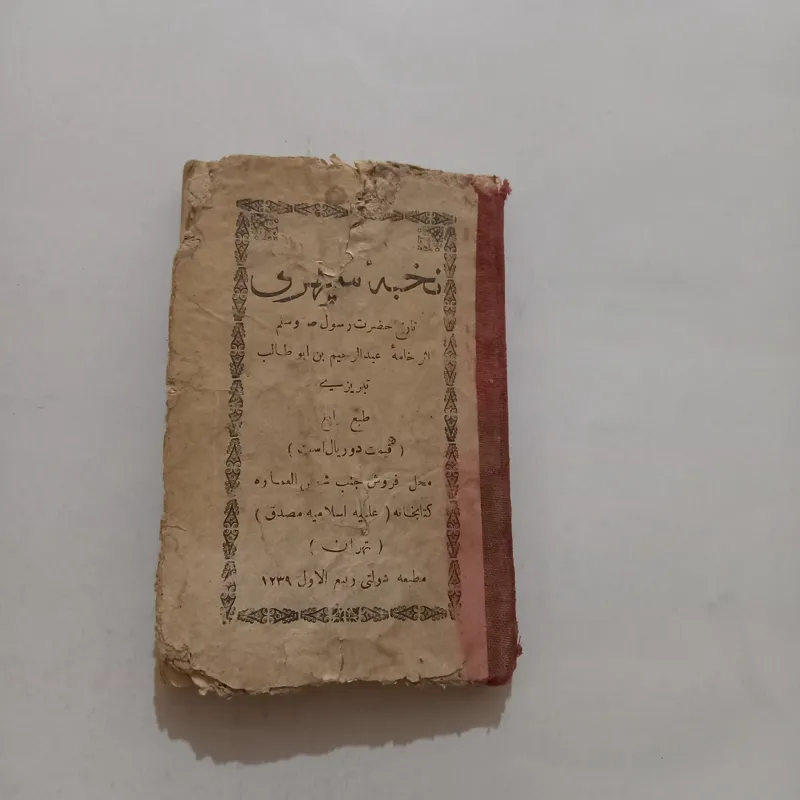 نخبهٔ سپهری
تاریخ حضرت رسول ص وسلم
اثر خامهٔ عبدالرحیم بن ابو طالب
تبریزی
طبع
( قیمت دوریال است )
محل فروش جنب شمس العماره
کتابخانه ( علمیه اسلامیه مصدق )
( تهران )
مطبعه دولتی ربیع الاول ۱۲۳۹